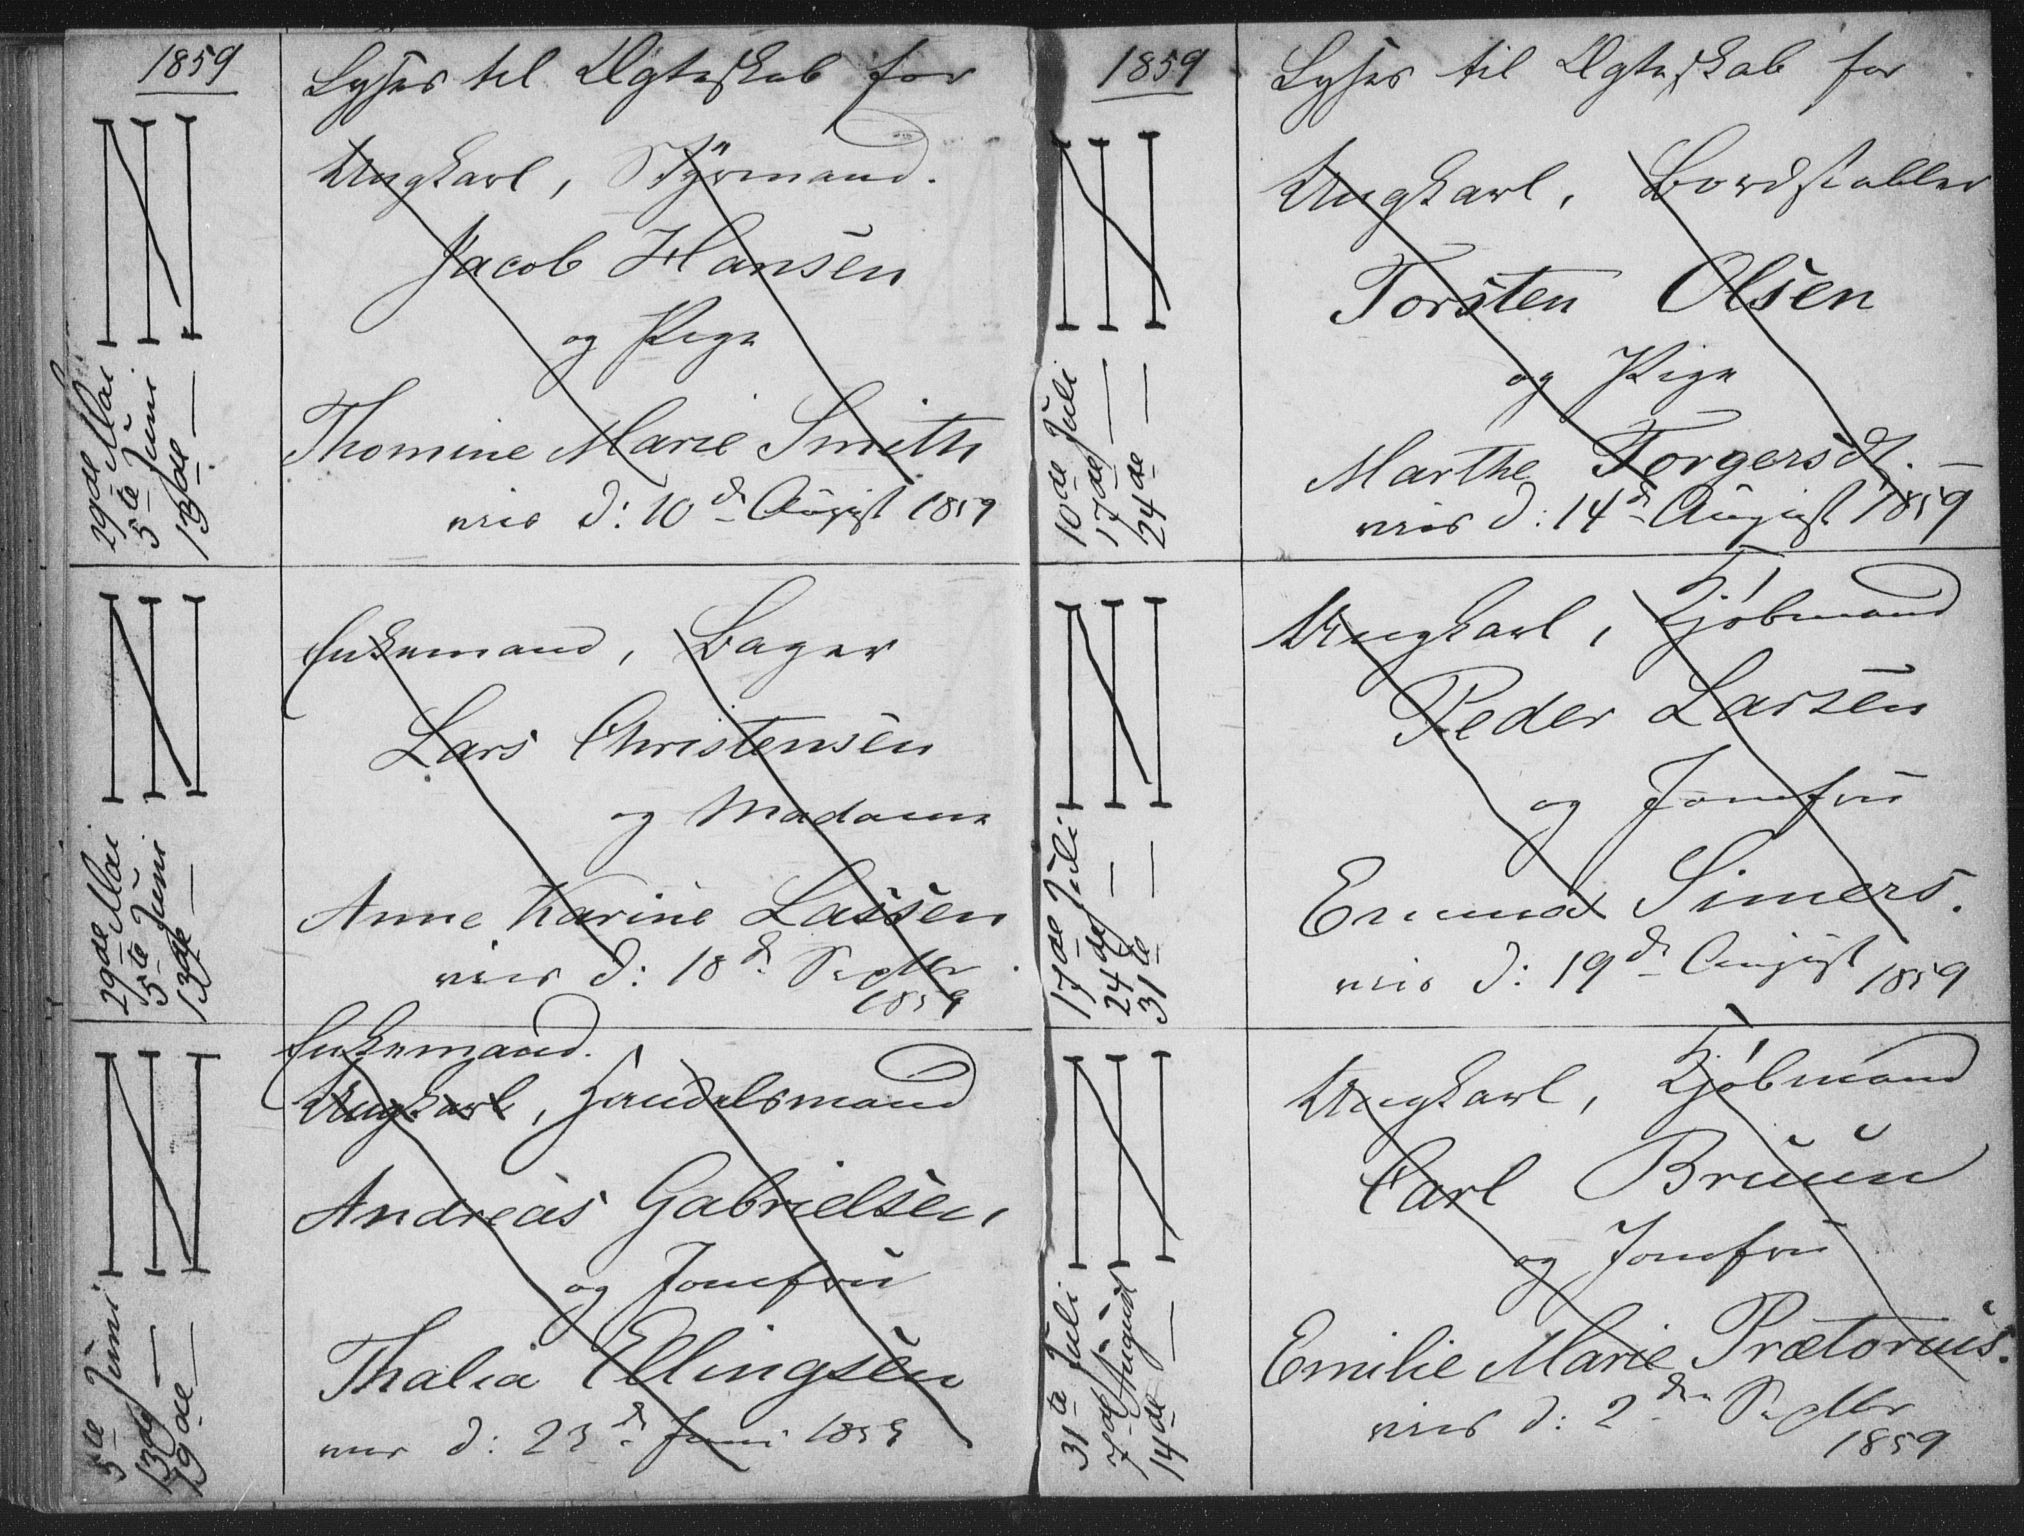 1859
Lyses til Ægteskab for
29de Mai
5te Juni
13de —
Ungkarl, Styrmand.
Jacob Hansen
og Pige
Thomine Marie Smith
viet d: 10de August 1859
29de Mai
5te Juni
13de —
Enkemand, Bager
Lars Christensen
og Madame
Anne Karine Lassen
viet d: 18de Septbr
1859
5te Juni
13de —
19de —
Enkemand.
Ungkarl, Handelsmand
Andreas Gabrielsen,
og Jomfru
Thalia Ellingsen
viet d: 23de Juni 1859
1859
Lyses til Ægteskab for
10de Juli
17de —
24de —
Ungkarl,
Torsten Olsen
og Pige
Marthe Torgersdt. —
viet d: 14de August 1859
17de Juli
24de —
31te —
Ungkarl, Kjøbmand
Peder Larsen
og Jomfru
Emma Simers.
viet d: 19de August 1859
31te Juli
7de August
14de —
Ungkarl, Kjøbmand
Carl Bruun
og Jomfru
Emilie Marie Prætorius.
viet d: 2den Septbr
1859